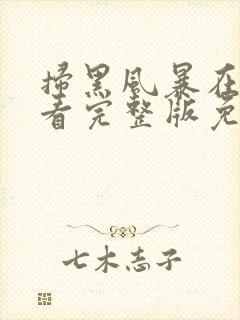 扫黑风暴在
看完整版免
七木志子